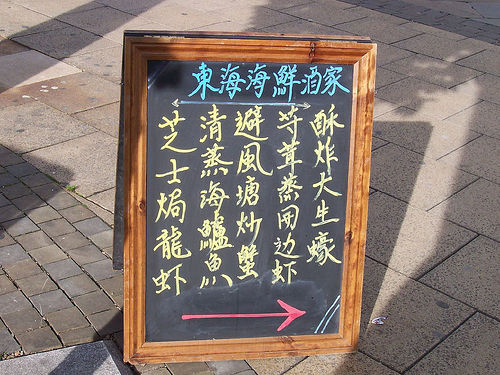 東海海鮮酒家
酥炸大生蠔
蒜茸蒸開边虾
避風塘炒蟹
清蒸海鱸魚
芝士焗龍虾